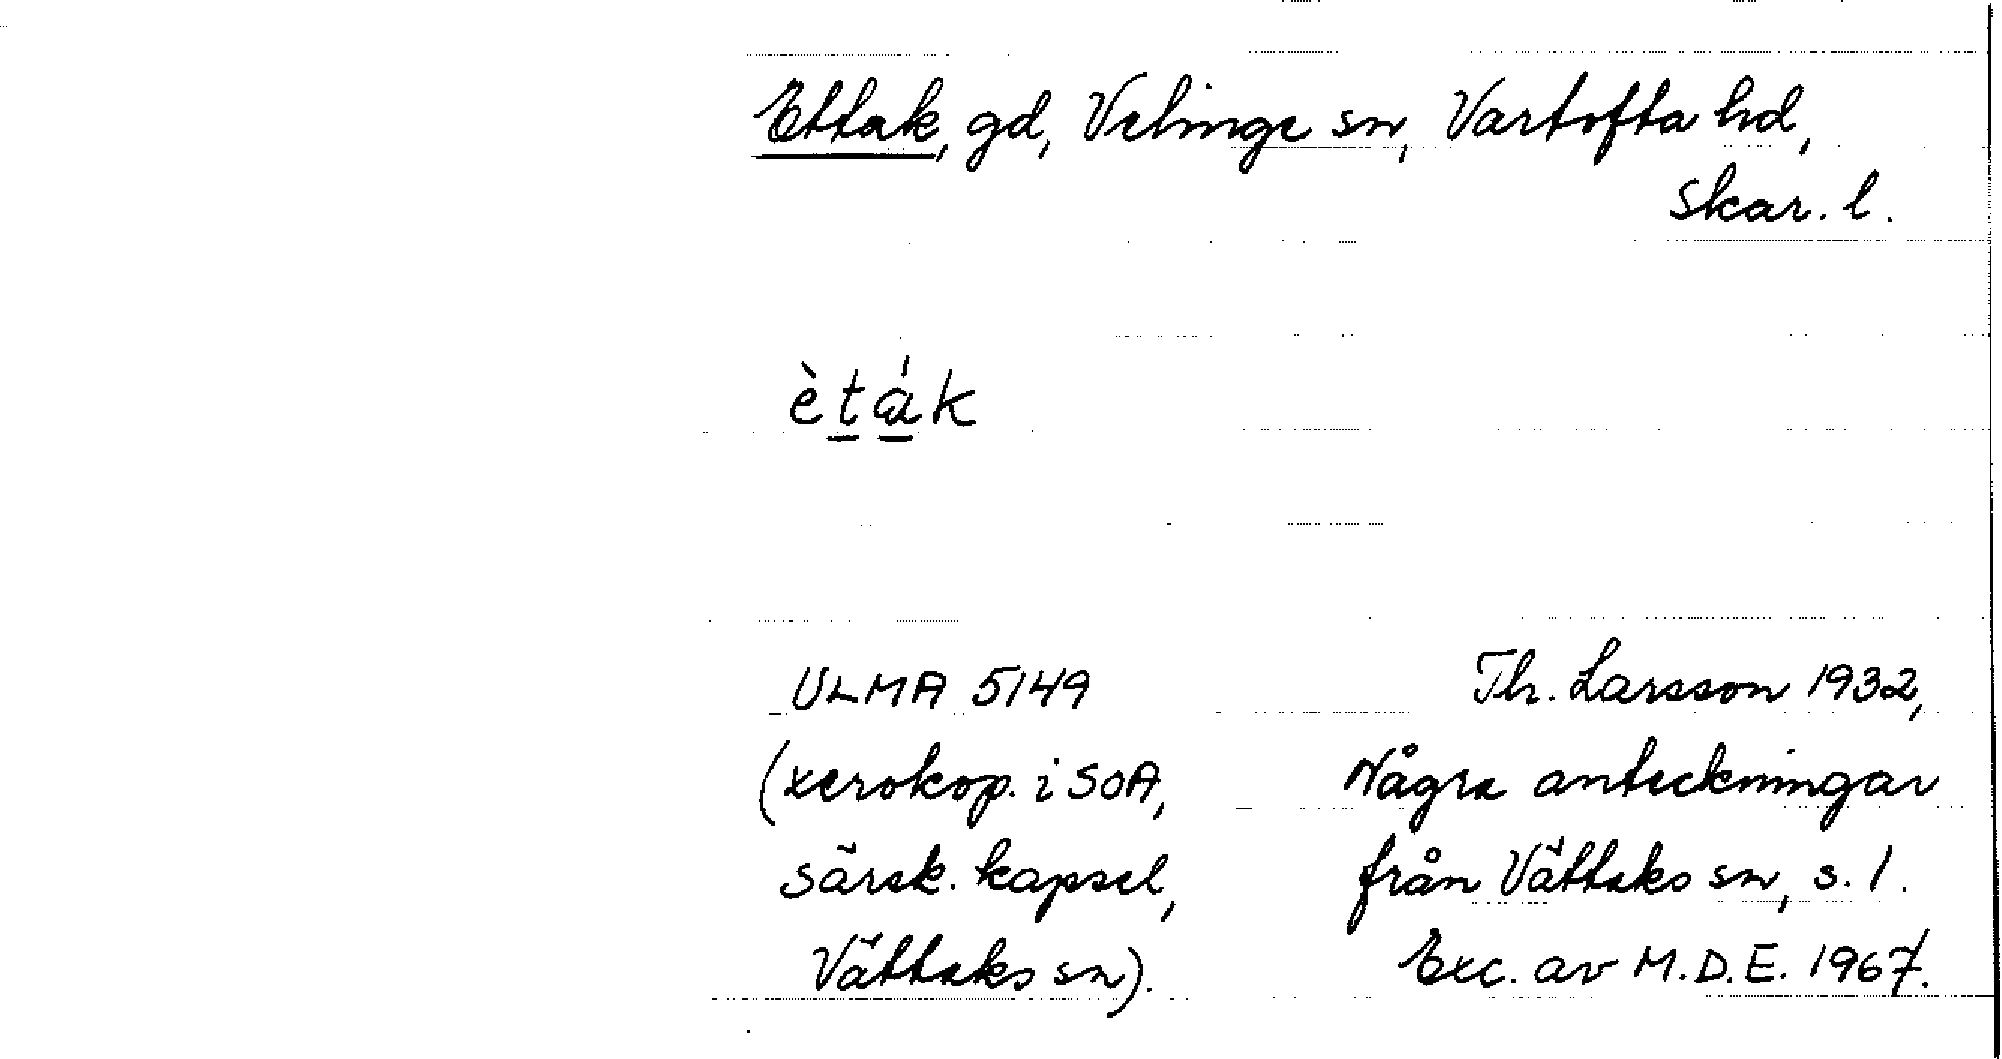 Ettak, gd, Velinge sn, Vartofta hd,
Skar. l.
èta̍k
ULMA 5149
(xerokop. i SOA,
särsk. kapsel,
Vättaks sn).
Th. Larsson 1932,
Några anteckningar
från Vättaks sn, s. 1.
Exc. av M.D.E. 1967.